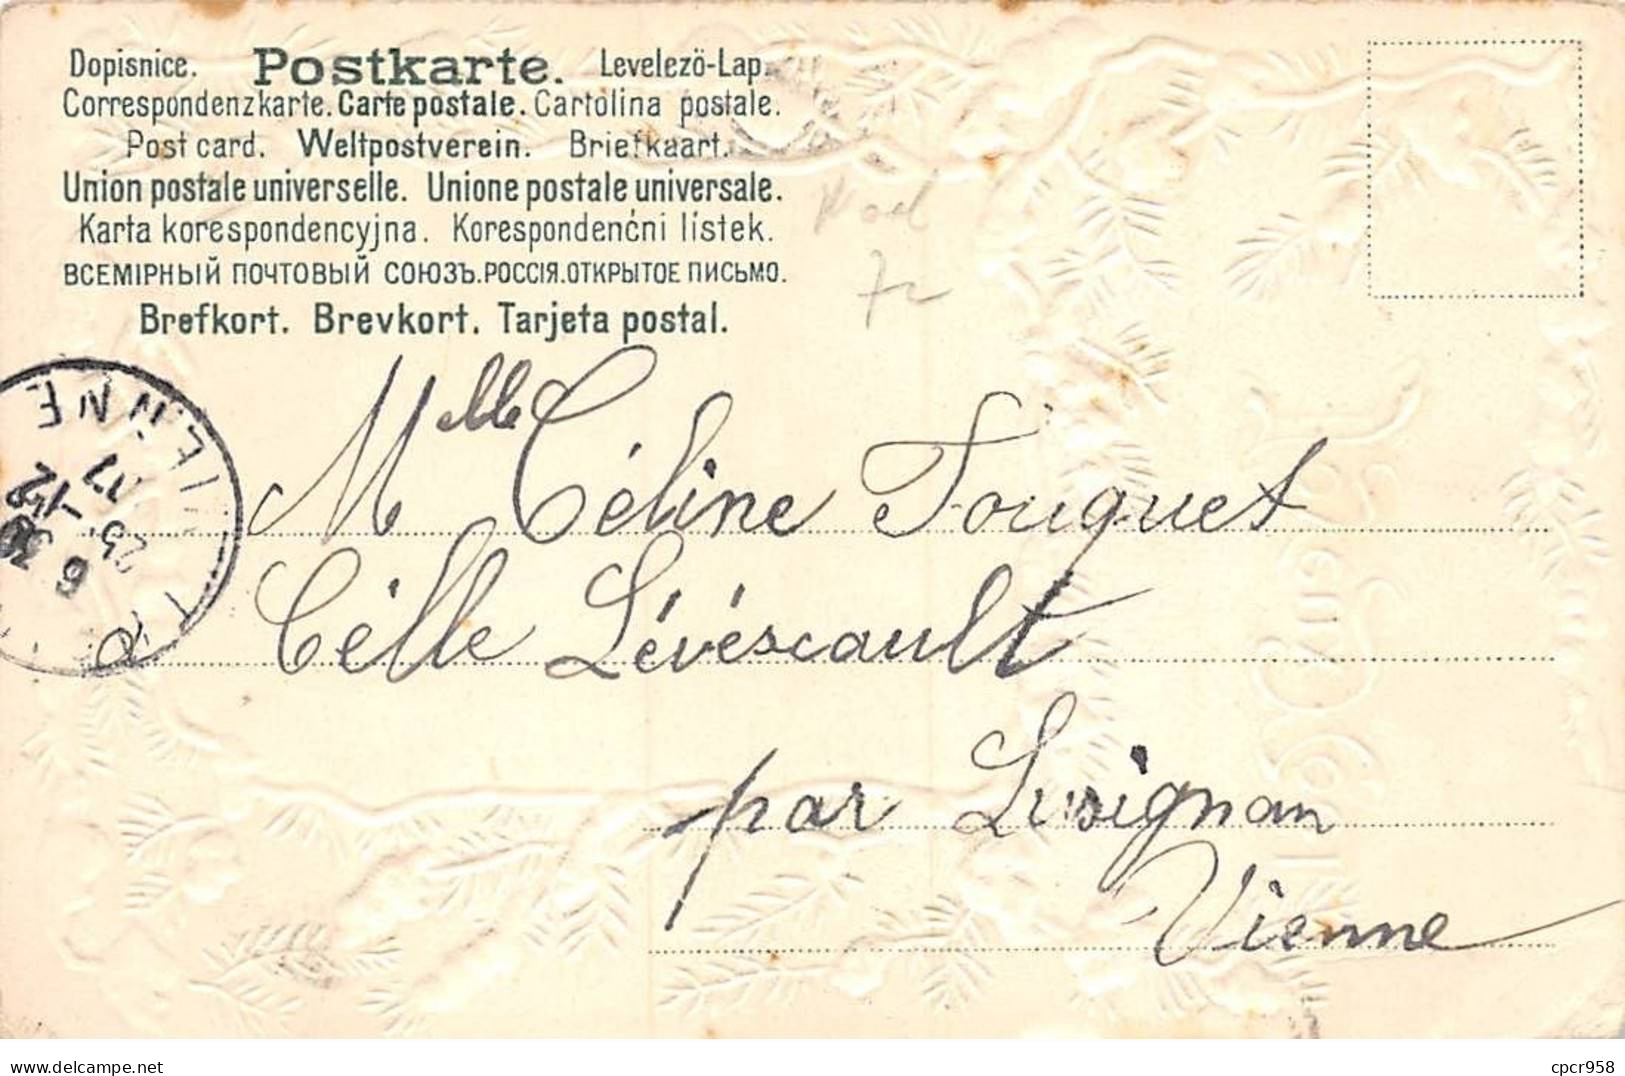 Dopisnice. Postkarte. Levelezö-Lap.
Correspondenzkarte. Carte postale. Cartolina postale.
Post card. Weltpostverein. Briefkaart.
Union postale universelle. Unione postale universale.
Karta korespondencyjna. Korespondenčni listek.
ВСЕМІРНЫЙ ПОЧТОВЫЙ СОЮЗЪ. РОССІЯ. ОТКРЫТОЕ ПИСЬМО.
Brefkort. Brevkort. Tarjeta postal.
Mlle Céline Fouquet
à Célle Lévéscault
par Lusignan
Vienne
delcampe.net
cpcr958